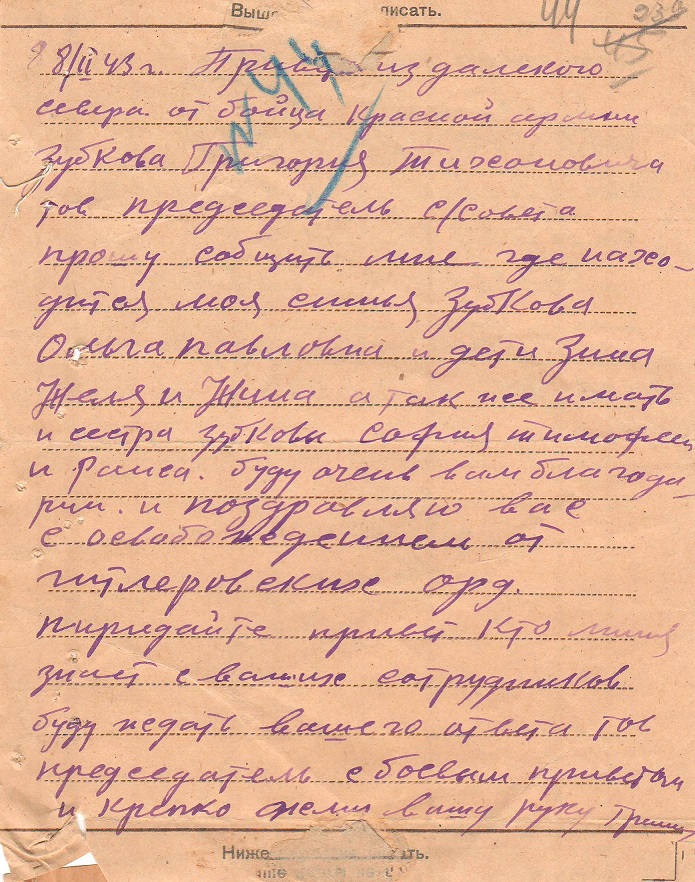 Выше писать.
44
8/II 43 г. Привет из далекого
севера от бойца красной армии
Зубкова Григория Тихоновича
тов председатель с/совета
прошу собщить мне где нахо-
дится моя симья Зубкова
Ольга павловна и дети Зина
Желя и Жина а так же и мать
и сестра зубковы София тимофеев
и Раиса. буду очень вам благода-
рин. и поздравляю вас
с освобождением от
гитлеровских орд.
пиридайте привет кто миня
знает с ваших сотрудников
буду ждать вашего ответа тов
председатель с боевым приветом
и крепко жму вашу руку
Ниже